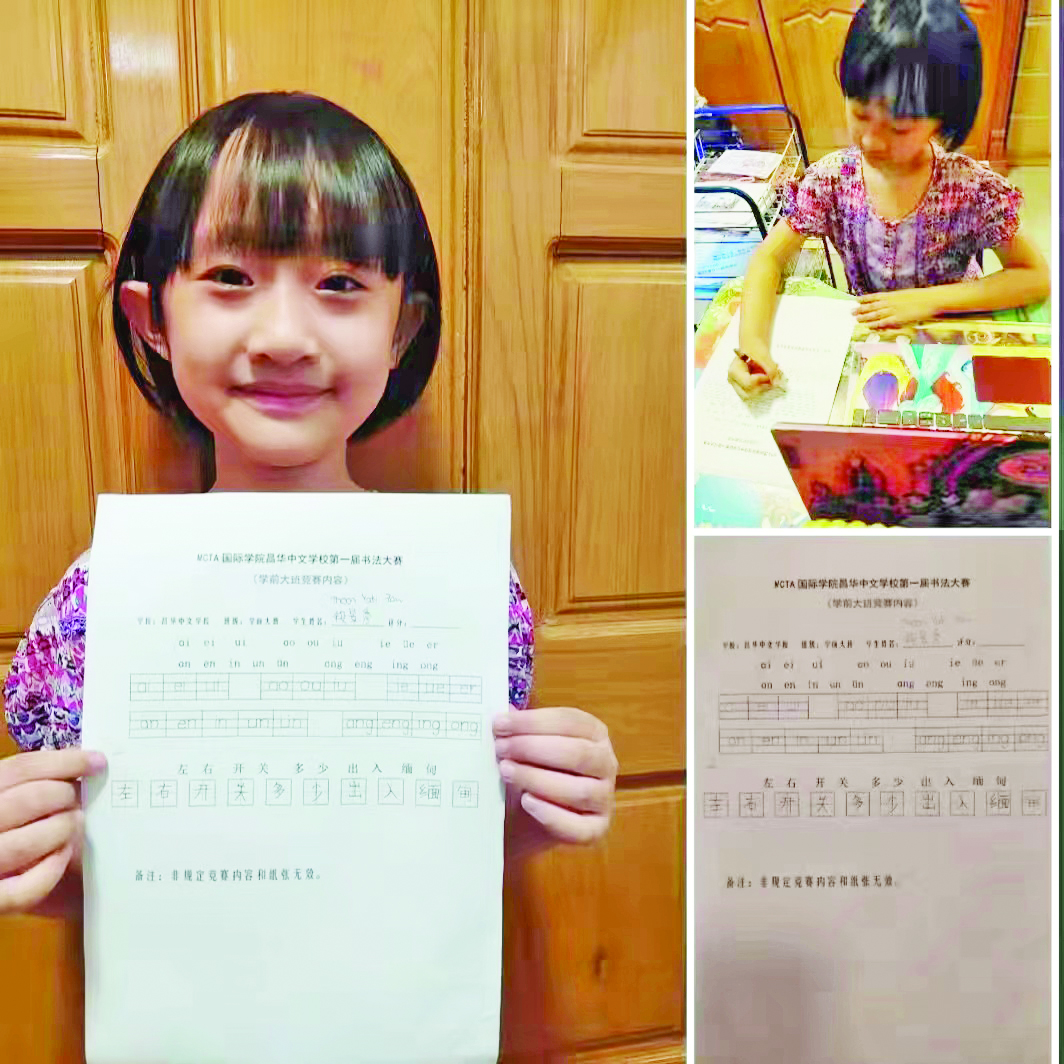 MCTA 国际学院昌华中文学校第一届书法大赛
（学前大班竞赛内容）
学校：昌华中文学校 班级：学前大班 学生姓名： 评分：
ai ei ui ao ou iu ie üe er
an en in un ün ang eng ing ong
ai ei ui ao ou iu ie üe er
an en in un ün ang eng ing ong
左 右 开 关 多 少 出 入 缅 甸
左 右 开 关 多 少 出 入 缅 甸
备注：非规定竞赛内容和纸张无效。
MCTA 国际学院昌华中文学校第一届书法大赛
（学前大班竞赛内容）
学校：昌华中文学校 班级：学前大班 学生姓名： 评分：
ai ei ui ao ou iu ie üe er
an en in un ün ang eng ing ong
ao ou iu ie üe er
an en in un ün ang eng ing ong
左 右 开 关 多 少 出 入 缅 甸
左 右 开 关 多 少 出 入 缅 甸
备注：非规定竞赛内容和纸张无效。